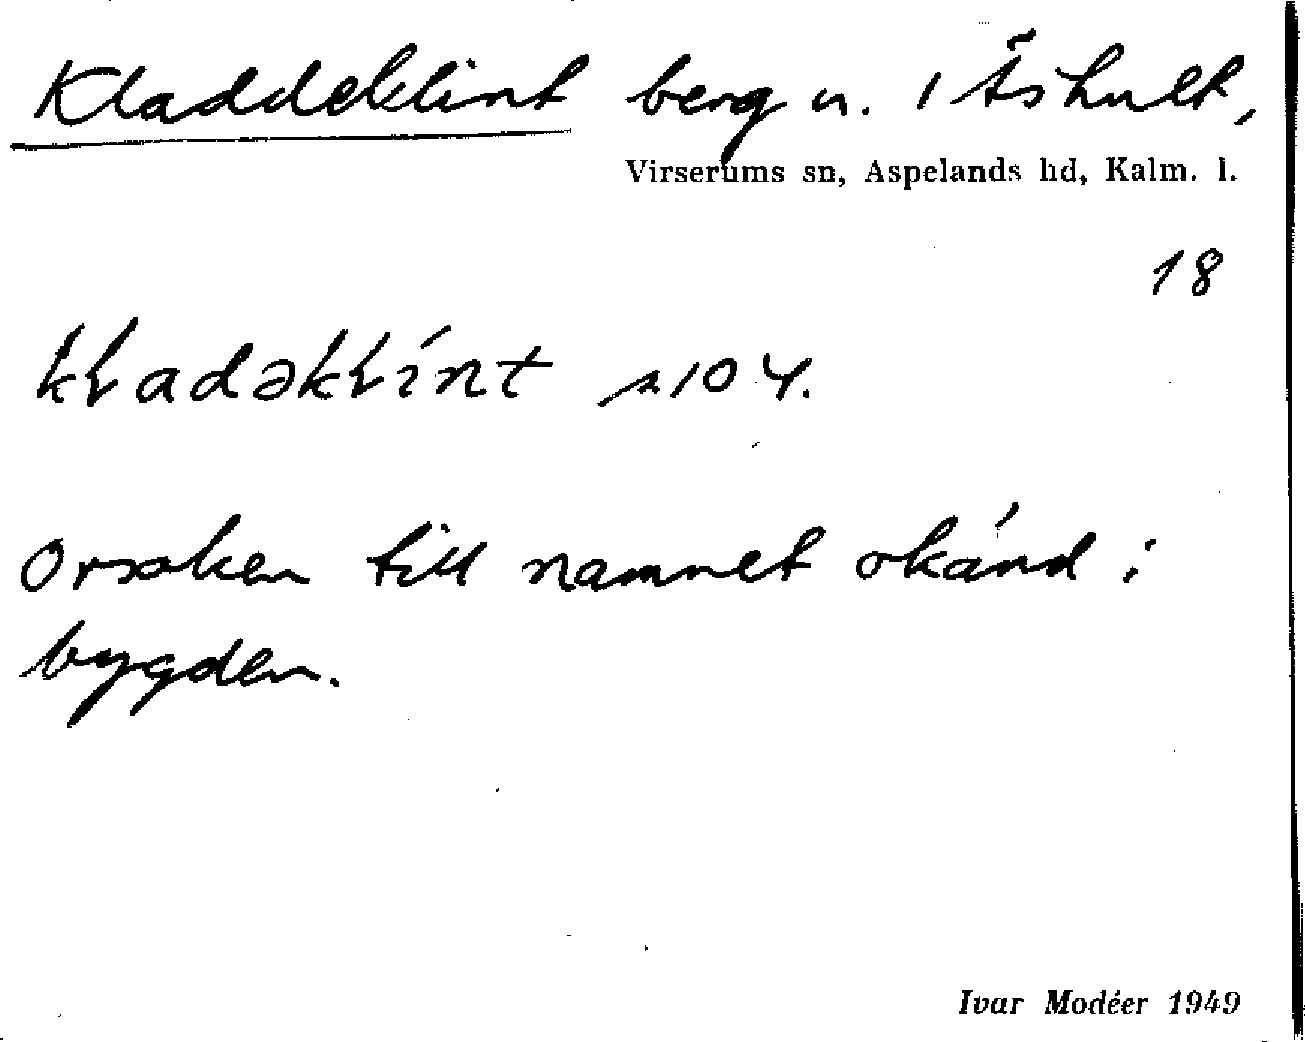 Kladdeklint berg n. 1 Åshult,
Virserums sn, Aspelands hd, Kalm. l.
18
kɫadəkɫint s 104.
Orsaken till namnet okänd i
bygden.
Ivar Modéer 1949